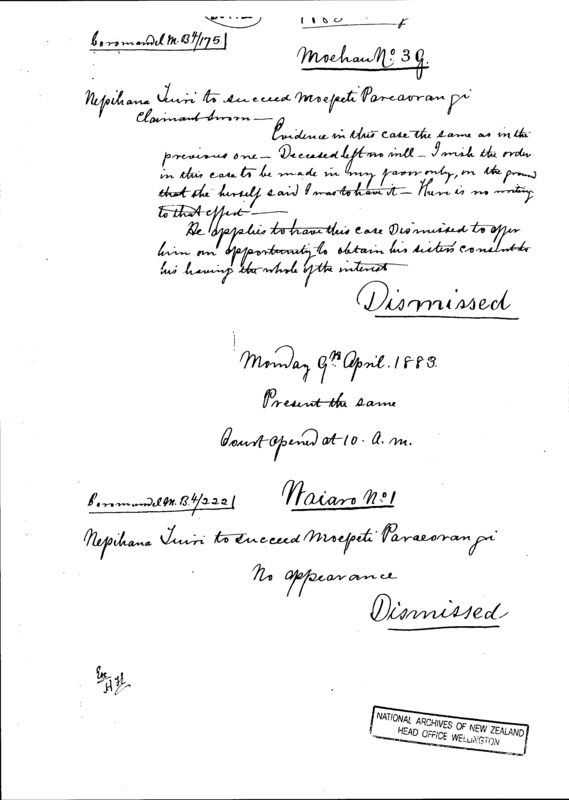 Coromandel M.B 4/175
Moehau No 3G.
Nepihana Tuiri to succeed Moepeti Paraeorangi
Claimant sworn —
Evidence in this case the same as in the
previous one — Deceased left no will — I wish the order
in this case to be made in my favor only, on the ground
that she herself said I was to have it — There is no writing
to that effect —
He applies to have this case Dismissed to offer
him an opportunity to obtain his sisters consent to
his having the whole of the interest
Dismissed
Monday 9th April. 1883.
Present the same
Court opened at 10. a.m.
Coromandel M.B. 4/222
Waiaro No 1
Nepihana Tuiri to succeed Moepeti Paraeorangi
No appearance
Dismissed
NATIONAL ARCHIVES OF NEW ZEALAND
HEAD OFFICE WELLINGTON